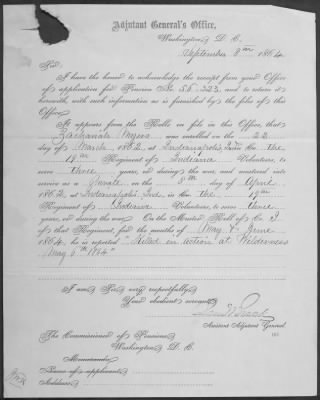 Adjutant General's Office,
Washington, D. C.
September 8th 1864
Sir:
I have the honor to acknowledge the receipt from your Office
of application for Pension No. 55.223, and to return it
herewith, with such information as is furnished by the files of this
Office.
It appears from the Rolls on file in this Office, that
was enrolled on the 22
day of March, 1862, at Indianapolis Ind Co. The
19th Regiment of Indiana Volunteers, to
serve three years, or during the war, and mustered into
service as a Private on the 8th day of April,
1862, at Indianapolis, Ind., in Co. The 19th
Regiment of Indiana Volunteers, to serve three
years, or during the war. On the Muster Roll of Co. I
of that Regiment, for the months of May & June
1864, he is reported "Killed in action at Wilderness
May 6th 1864"
I am, Sir, very respectfully,
Your obedient servant,
Assistant Adjutant General.
The Commissioner of Pensions,
Washington, D. C.
Memoranda:
Name of applicant,
Address,